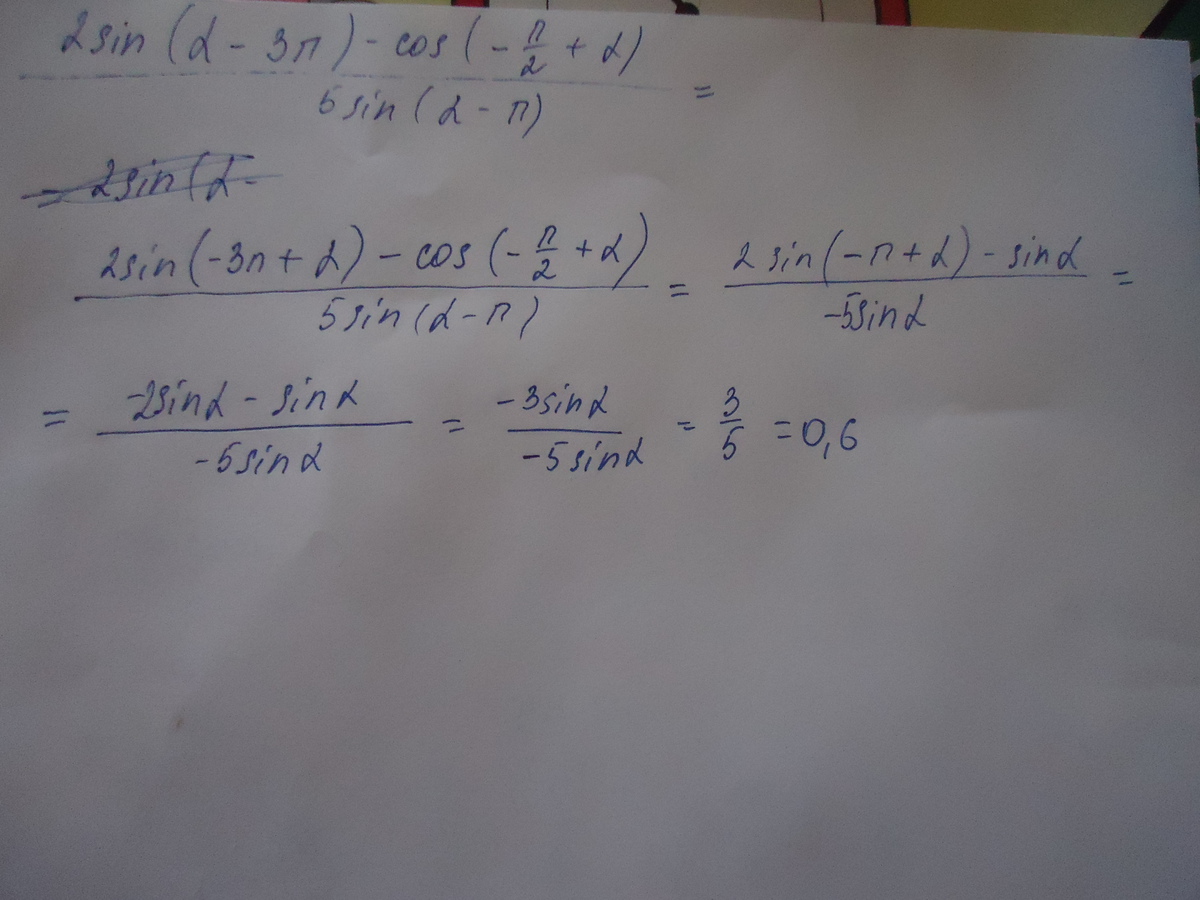 2sin(α - 3π) - cos(-π/2 + α) / 5sin(α - π) =
= 2sin(α -
2sin(-3π + α) - cos(-π/2 + α) / 5sin(α - π) = 2sin(-π + α) - sinα / -5sinα =
= -2sinα - sinα / -5sinα = -3sinα / -5sinα = 3/5 = 0,6